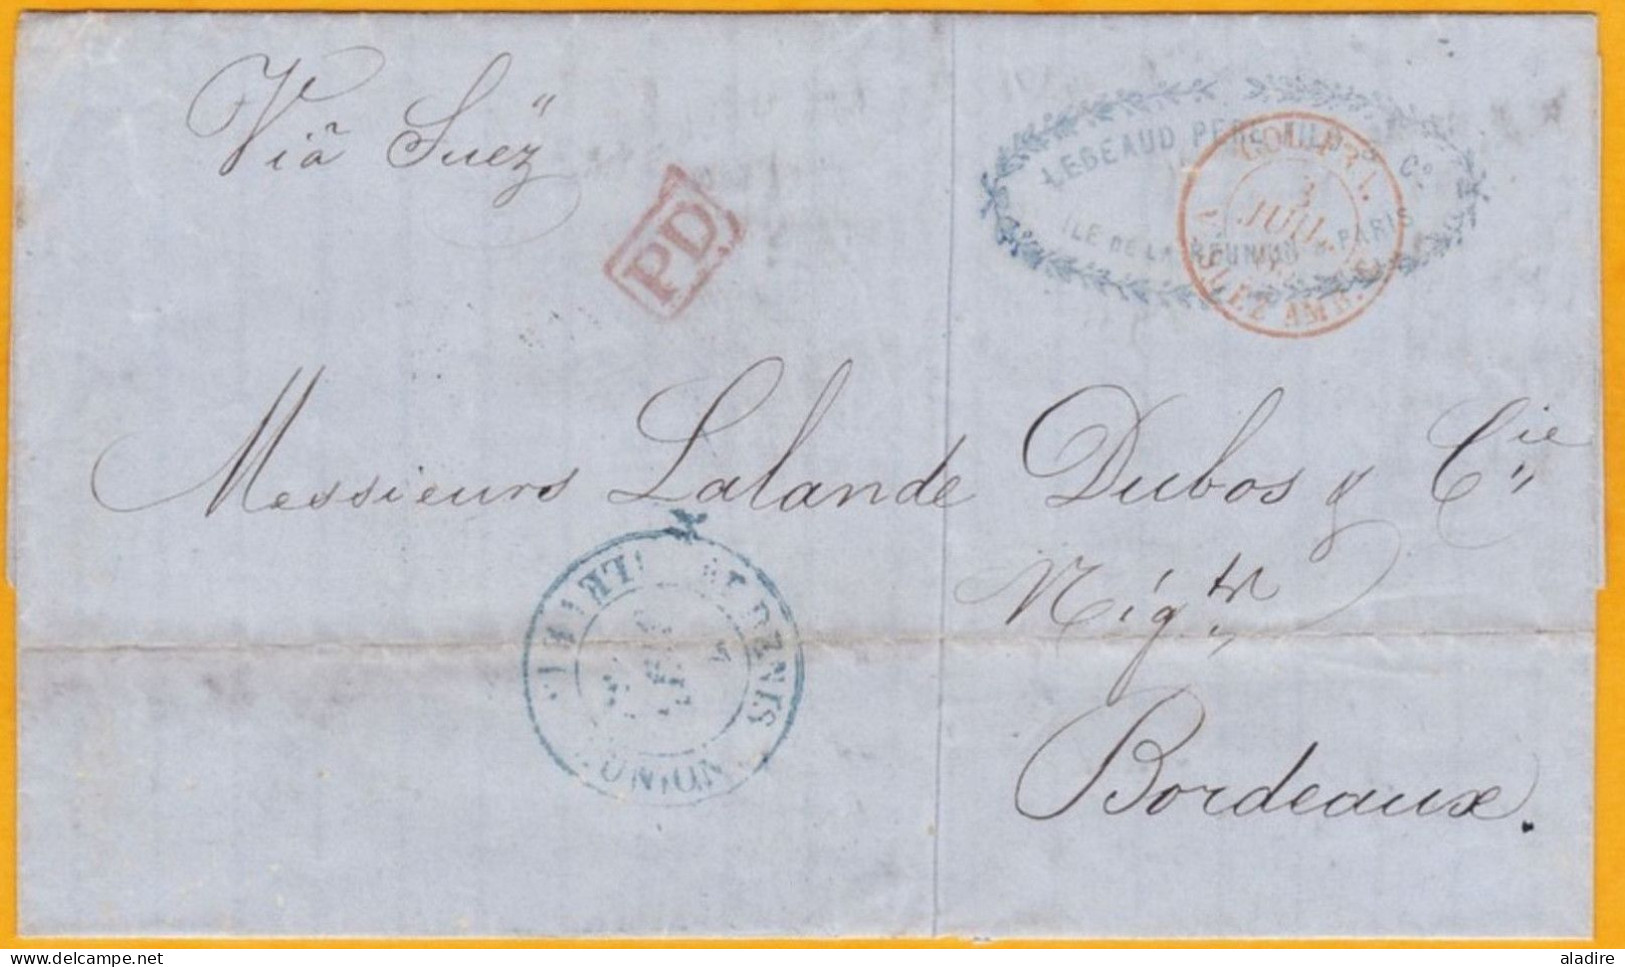 Viã Suez
PD
LEGEAUD PERSONILD & Cº
ILE DE LA RÉUNION PARIS
3
JUIL.
SUEZ AMB.
Messieurs Lalande Dubos & Cie
Nigts
Bordeaux.
ST DENIS
RÉUNION
delcampe.net
aladire